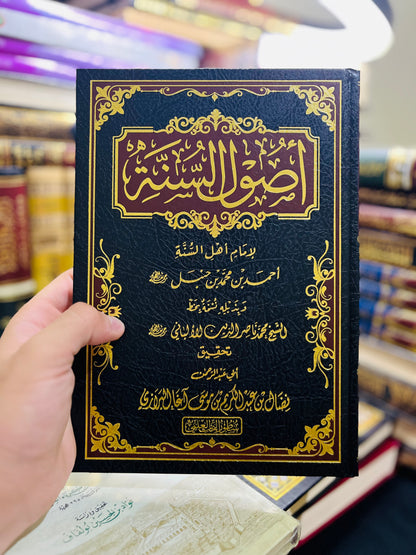 أصول السنة
لإمام أهل السنة
أحمد بن محمد بن حنبل رحمه الله
وبذيله نسخة بخط
الشيخ محمد ناصر الدين الألباني رحمه الله
تحقيق
أبي عبد الرحمن
نضال بن عبد الكريم بن موسى آغا البرازي